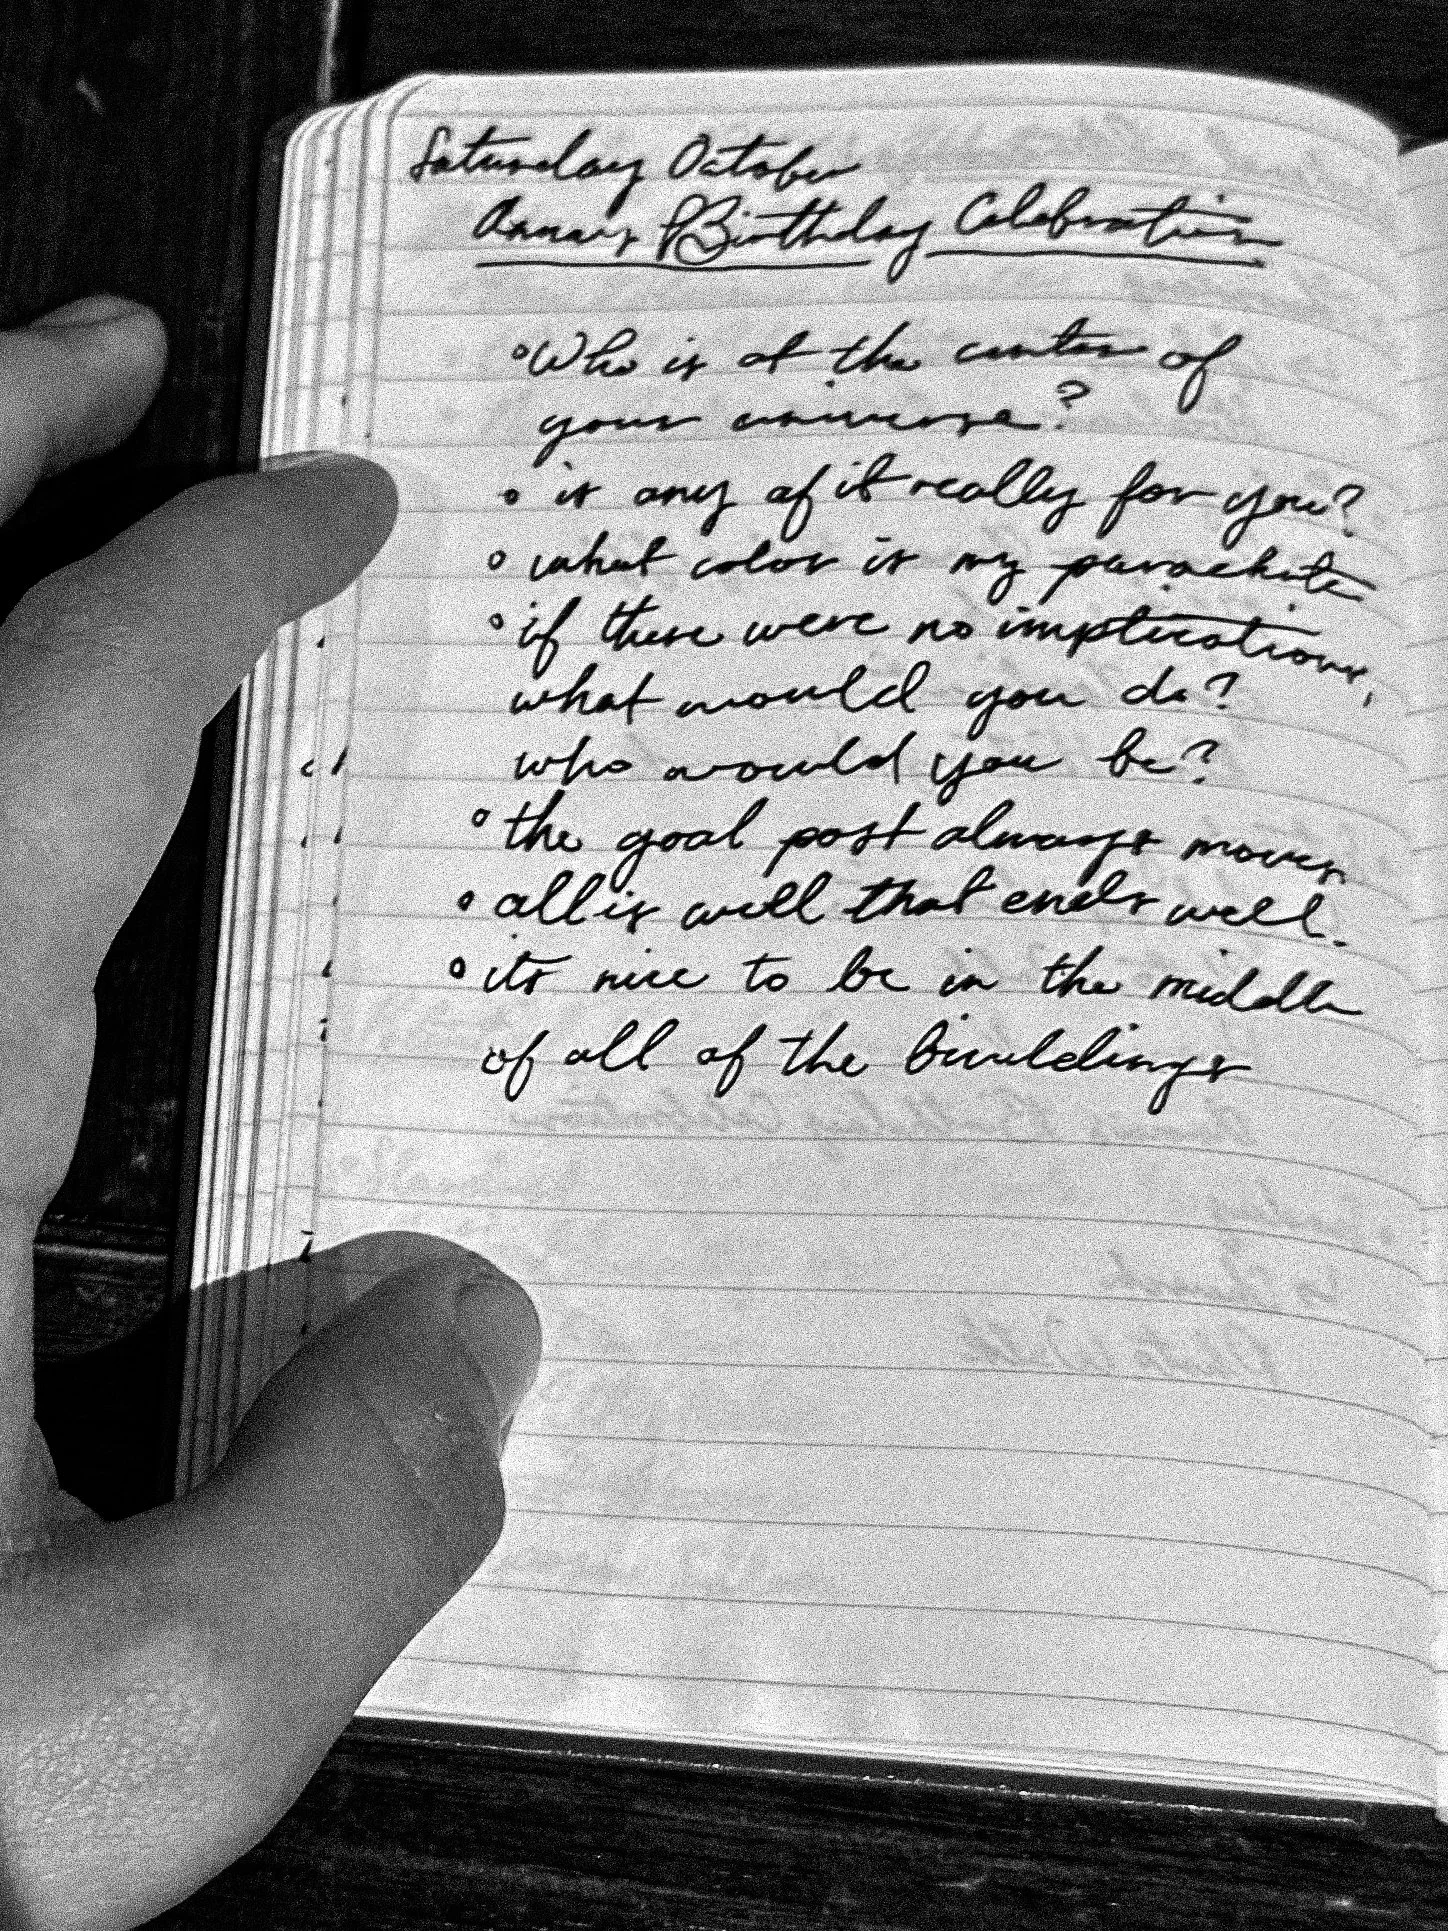 Saturday October
Birthday Celebration
Who is at the center of
your universe?
is any of it really for you?
what color is my parachute
if there were no implications,
what would you do?
who would you be?
the goal post always moves
all is well that ends well.
its nice to be in the middle
of all of the buildings